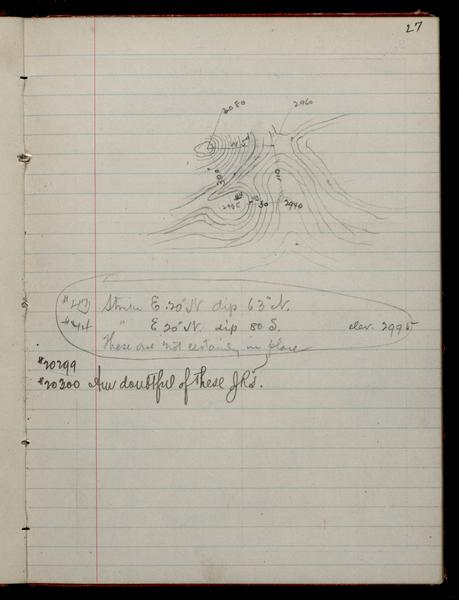 27
3080 2960
300
2985 50 2940
#43 Strike E. 20° N. dip 63° N.
#44 " E. 20° N. dip 80 S. elev. 2995
These are not certainly in place
#20299
#20300 Am doubtful of these JRS.